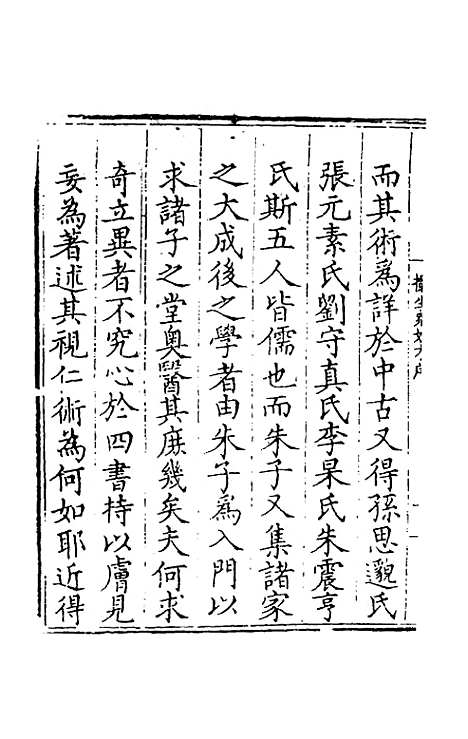 而其術爲詳於中古又得孫思邈氏
張元素氏劉守真氏李杲氏朱震亨
氏斯五人皆儒也而朱子又集諸家
之大成後之學者由朱子爲入門以
求諸子之堂奧醫其庻幾矣夫何求
奇立異者不究心於四書持以膚見
妄為著述其視仁術為何如耶近得